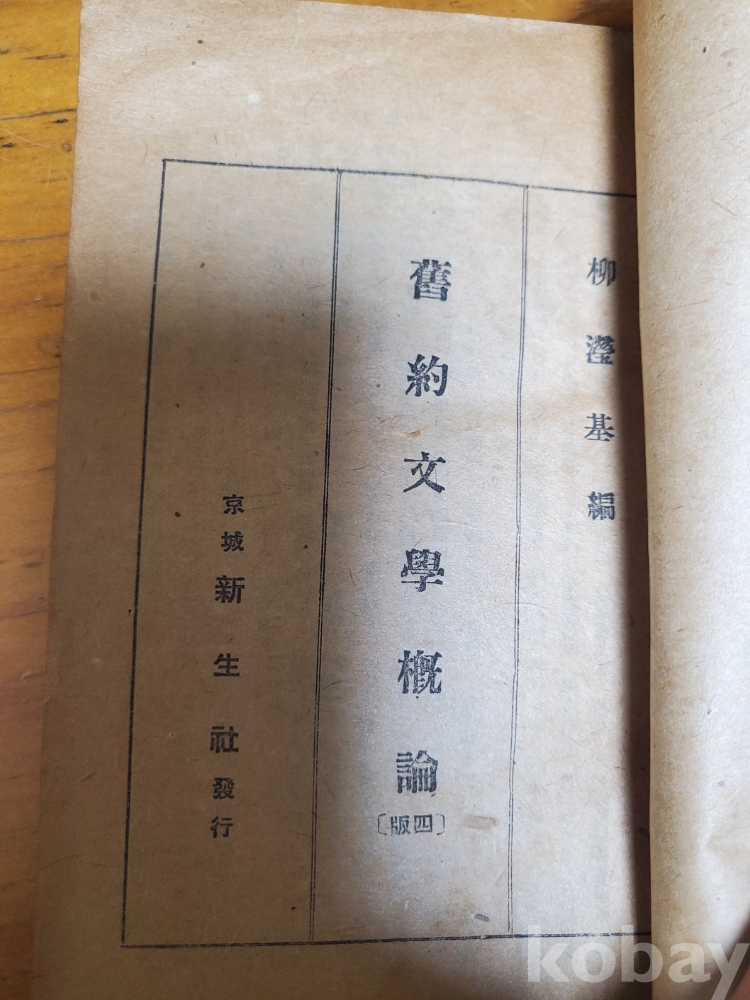 柳瀅基編
舊約文學槪論
〔四版〕
京城 新生社發行
kobay